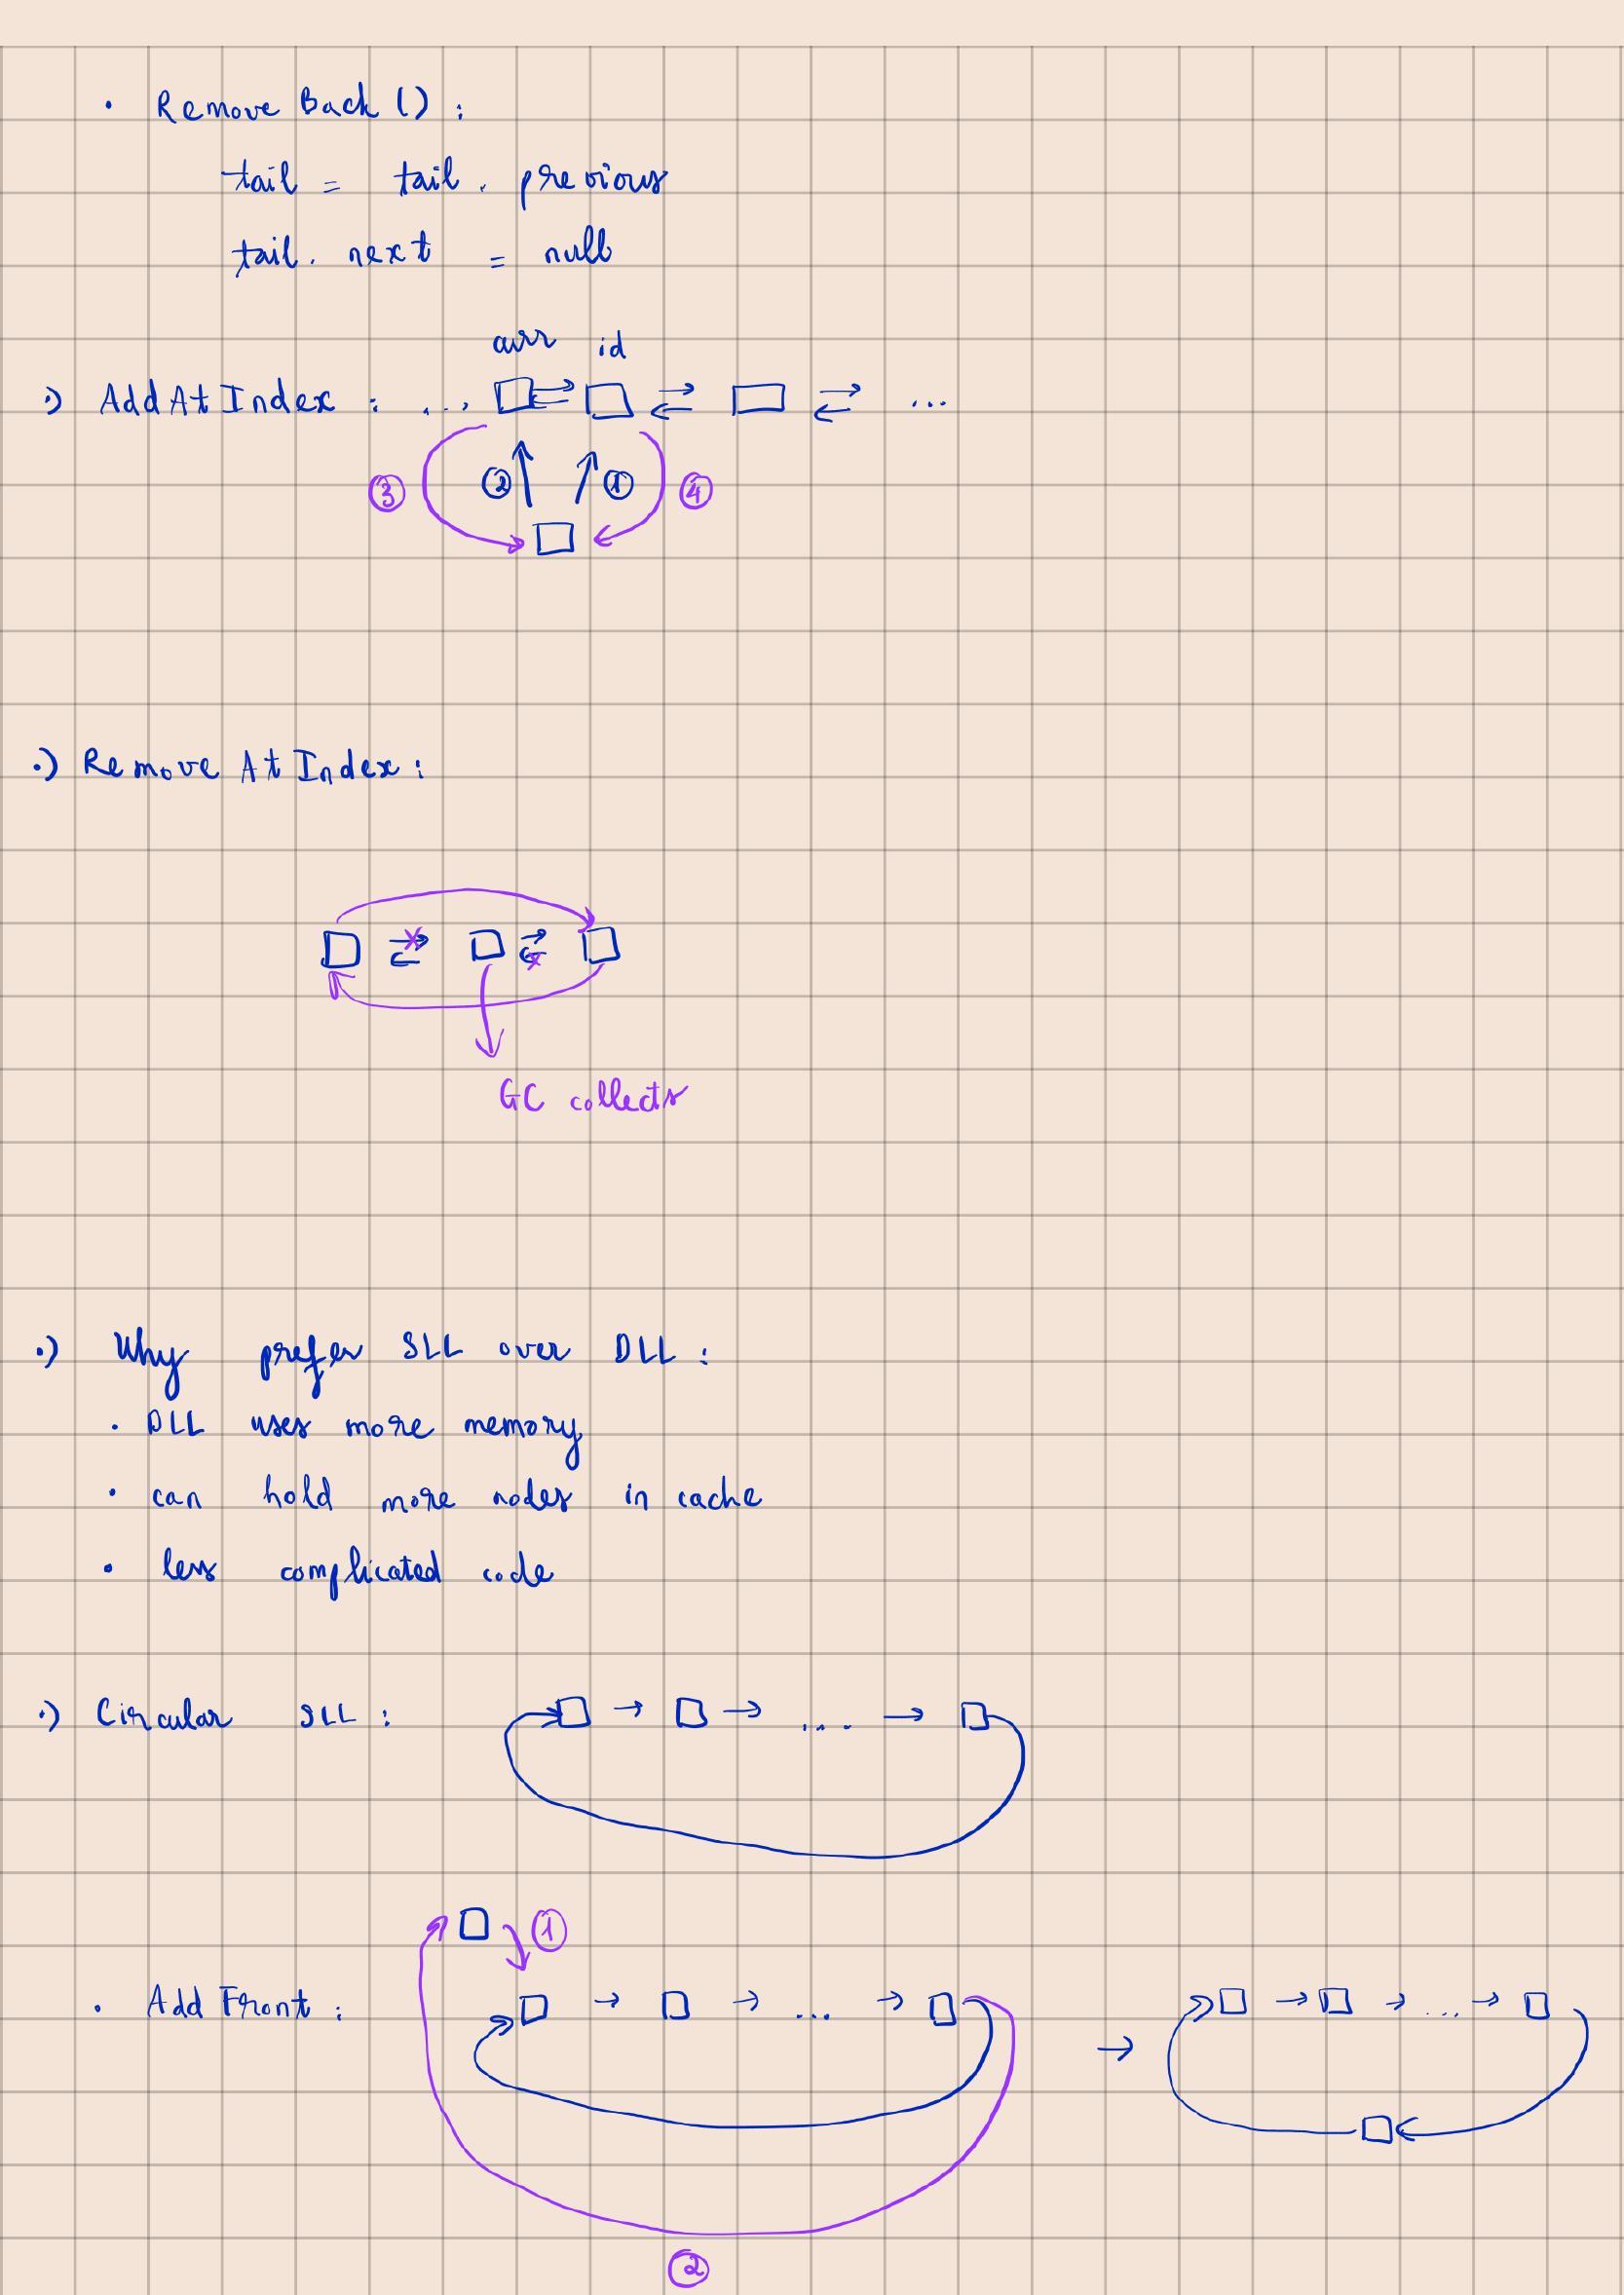 · Remove Back () :
tail = tail . previous
tail . next = null
curr id
·) Add At Index : ... ...
③ ② ① ④
·) Remove At Index :
GC collects
·) Why prefer SLL over DLL :
· DLL uses more memory
· can hold more nodes in cache
· less complicated code
·) Circular SLL : ....
①
· Add Front : ... ...
②